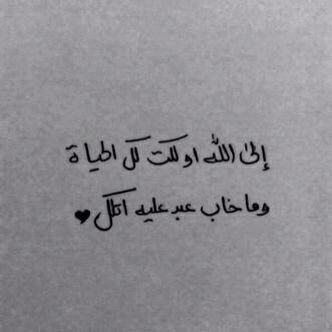 إلى الله اوكلت كل الحياة
وما خاب عبد عليه اتكل ♥